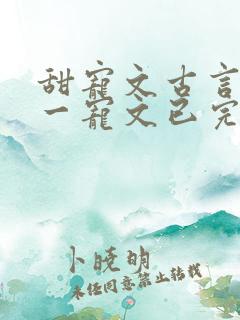 甜寵文古言
一寵文已完
卜晓明
未经同意禁止转载